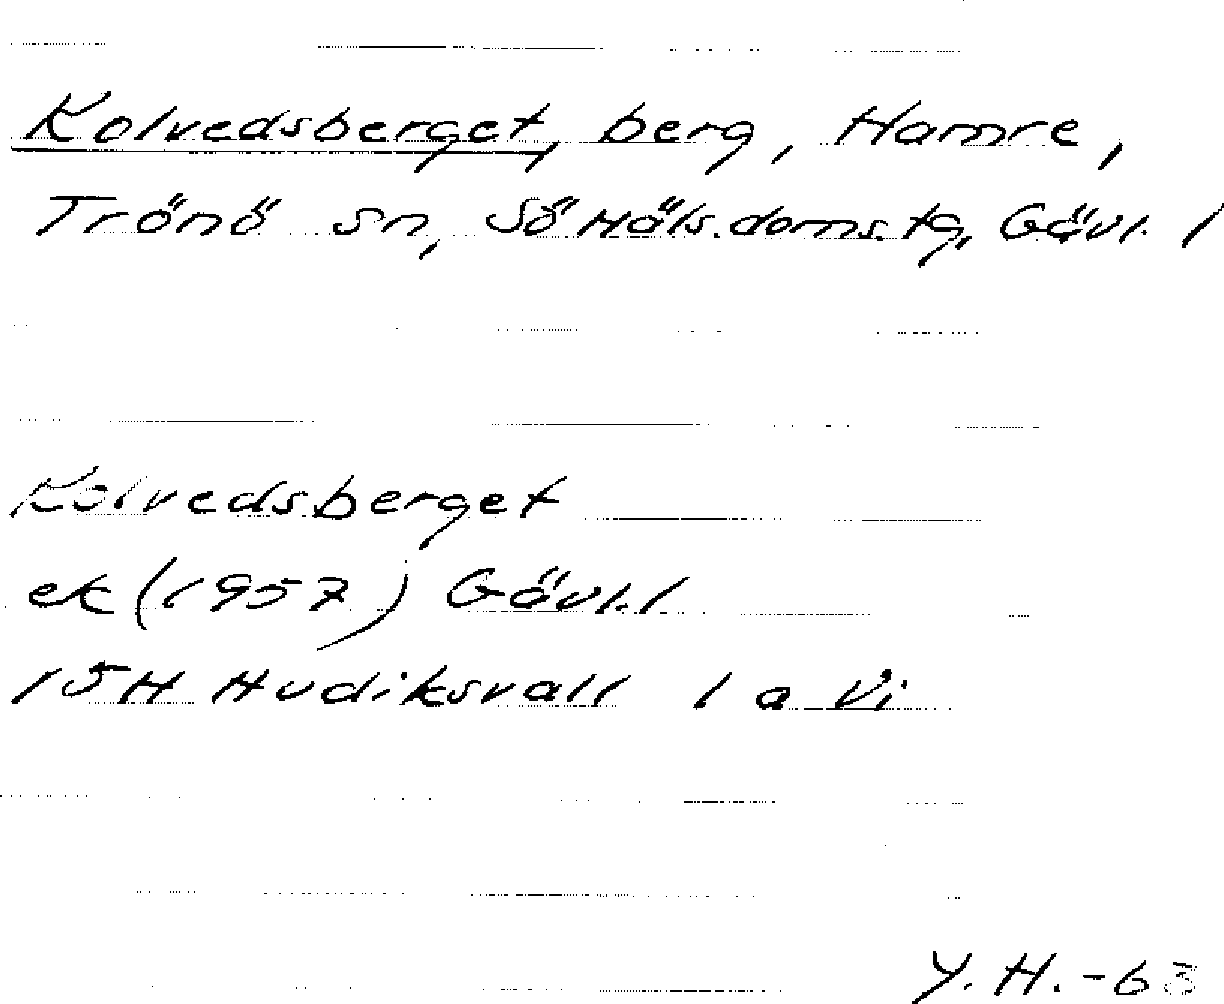 Kolvedsberget, berg, Hamre,
Trönö sn, Sö Häls. doms. tg, Gävl. l
Kolvedsberget
ek (1957) Gävl. l
15H Hudiksvall 1 a Vi
Y. H. -63